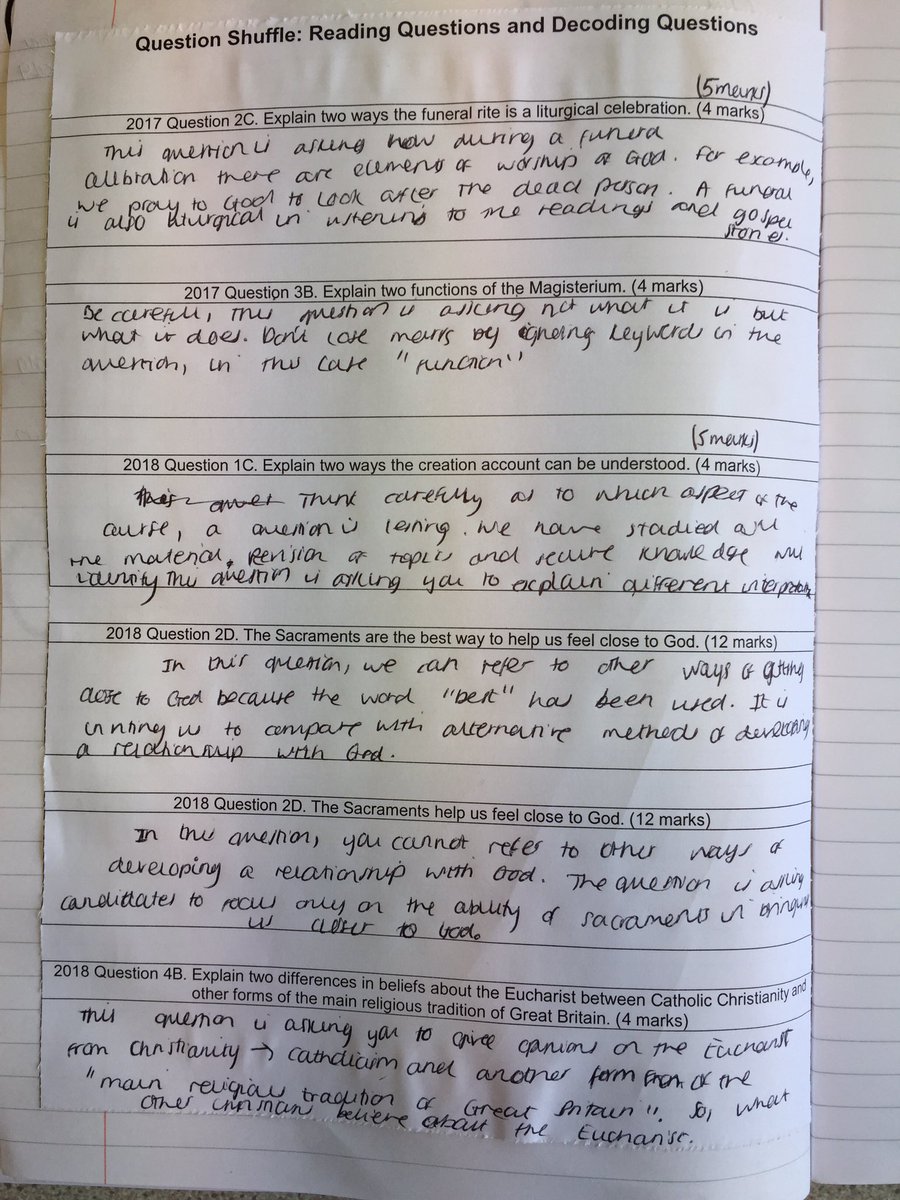 Question Shuffle: Reading Questions and Decoding Questions
(5 marks)
2017 Question 2C. Explain two ways the funeral rite is a liturgical celebration. (4 marks)
This question is asking how during a funeral
celebration there are elements of worship of God. For example,
we pray to God to look after the dead person. A funeral
is also liturgical in listening to the readings and gospel
stories.
2017 Question 3B. Explain two functions of the Magisterium. (4 marks)
Be careful, this question is asking not what it is but
what it does. Don't lose marks by ignoring keywords in the
question, in this case "function"
(5 marks)
2018 Question 1C. Explain two ways the creation account can be understood. (4 marks)
Think carefully as to which aspect of the
course, a question is testing. We have studied all
the material. Revision of topics and secure knowledge will
identify this question is asking you to explain different
2018 Question 2D. The Sacraments are the best way to help us feel close to God. (12 marks)
In this question, we can refer to other ways of getting
close to God because the word "best" has been used. It is
inviting us to compare with alternative methods of developing
a relationship with God.
2018 Question 2D. The Sacraments help us feel close to God. (12 marks)
In this question, you cannot refer to other ways of
developing a relationship with God. The question is asking
candidates to focus only on the ability of sacraments in
us closer to God.
2018 Question 4B. Explain two differences in beliefs about the Eucharist between Catholic Christianity and
other forms of the main religious tradition of Great Britain. (4 marks)
This question is asking you to give opinions on the Eucharist
from Christianity → catholicism and another form from of the
"main religious tradition of Great Britain". So, what
other christians believe about the Eucharist.